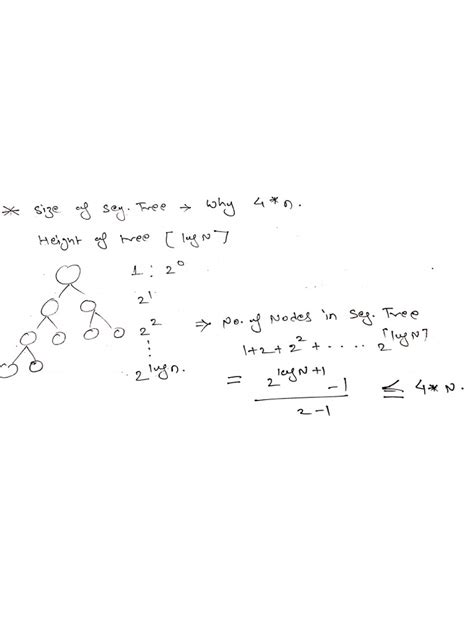 * Size of Seg. Tree → Why 4*n.
Height of tree ⌈log N⌉
1 : 2^0
2^1
2^2 ⇒ No. of Nodes in Seg. Tree
⋮ 1+2+2^2+ ..... 2^⌈log N⌉
2^log n. = (2^(log N+1) -1) / (2-1) ≤ 4*N.